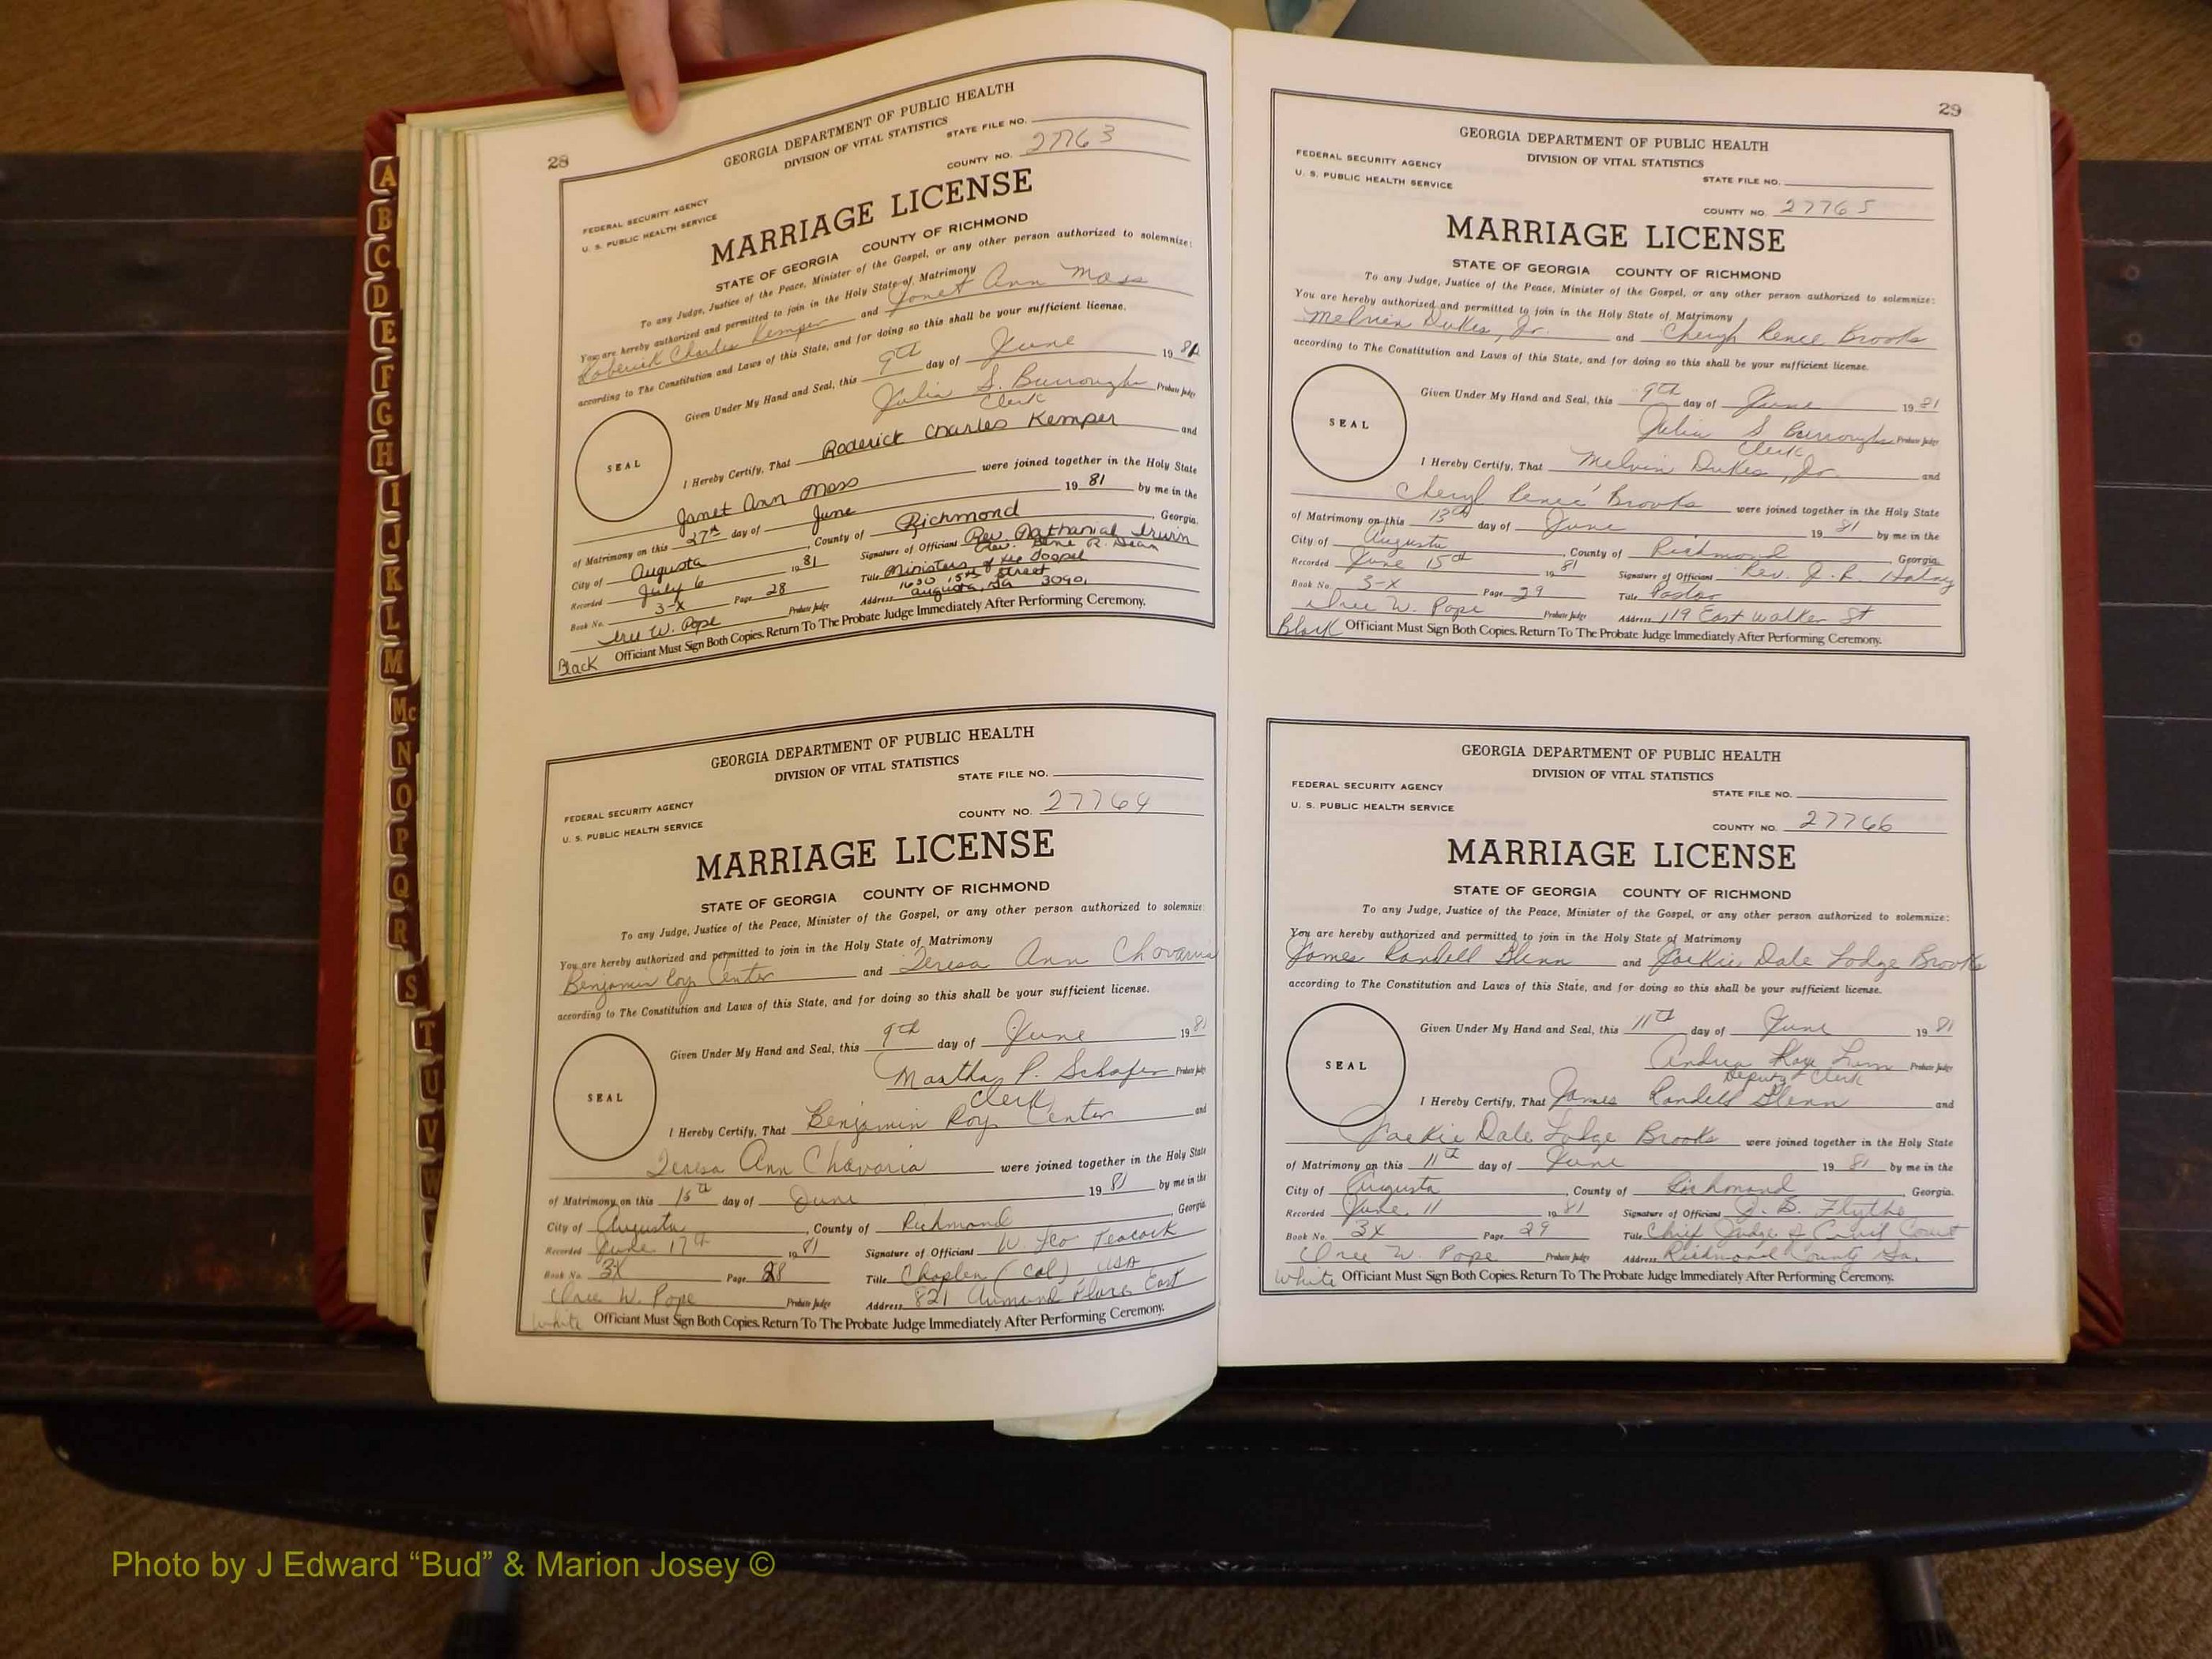 A
B
C
D
E
F
G
H
I
J
K
L
M
Mc
N
O
P
Q
R
S
T
U
V
W
28
GEORGIA DEPARTMENT OF PUBLIC HEALTH
DIVISION OF VITAL STATISTICS
STATE FILE NO.
FEDERAL SECURITY AGENCY
U. S. PUBLIC HEALTH SERVICE
COUNTY NO. 27763
MARRIAGE LICENSE
STATE OF GEORGIA COUNTY OF RICHMOND
To any Judge, Justice of the Peace, Minister of the Gospel, or any other person authorized to solemnize:
You are hereby authorized and permitted to join in the Holy State of Matrimony
Roderick Charles Kemper and Janet Ann Moss
according to The Constitution and Laws of this State, and for doing so this shall be your sufficient license.
Given Under My Hand and Seal, this 9th day of June 19 81
SEAL
Julia S. Burroughs Probate Judge
Clerk
I Hereby Certify, That Roderick Charles Kemper and
Janet Ann Moss were joined together in the Holy State
of Matrimony on this 27th day of June 19 81 by me in the
City of Augusta, County of Richmond, Georgia.
Recorded July 6 19 81 Signature of Officiant Rev. Nathanial Irvin
Rev. Gene R. Dean
Book No. 3-X Page 28 Title Ministers of the Gospel
Address 1630 15th Street
Augusta, Ga 3090
Iree W. Pope Probate Judge
Black Officiant Must Sign Both Copies. Return To The Probate Judge Immediately After Performing Ceremony.
GEORGIA DEPARTMENT OF PUBLIC HEALTH
DIVISION OF VITAL STATISTICS
STATE FILE NO.
FEDERAL SECURITY AGENCY
U. S. PUBLIC HEALTH SERVICE
COUNTY NO. 27764
MARRIAGE LICENSE
STATE OF GEORGIA COUNTY OF RICHMOND
To any Judge, Justice of the Peace, Minister of the Gospel, or any other person authorized to solemnize:
You are hereby authorized and permitted to join in the Holy State of Matrimony
Benjamin Roy Center and Teresa Ann Chavaria
according to The Constitution and Laws of this State, and for doing so this shall be your sufficient license.
Given Under My Hand and Seal, this 9th day of June 19 81
SEAL
Martha P. Schafer Probate Judge
Clerk
I Hereby Certify, That Benjamin Roy Center and
Teresa Ann Chavaria were joined together in the Holy State
of Matrimony on this day of June 19 81 by me in the
City of Augusta, County of Richmond, Georgia
Recorded June 17th 19 81 Signature of Officiant W. Leo Peacock
Book No. 3X Page 28 Title Chaplen (Col) USA
Iree W. Pope Probate Judge Address 821 Aumond Place East
White Officiant Must Sign Both Copies. Return To The Probate Judge Immediately After Performing Ceremony.
29
GEORGIA DEPARTMENT OF PUBLIC HEALTH
DIVISION OF VITAL STATISTICS
FEDERAL SECURITY AGENCY
U. S. PUBLIC HEALTH SERVICE
STATE FILE NO.
COUNTY NO. 27765
MARRIAGE LICENSE
STATE OF GEORGIA COUNTY OF RICHMOND
To any Judge, Justice of the Peace, Minister of the Gospel, or any other person authorized to solemnize:
You are hereby authorized and permitted to join in the Holy State of Matrimony
Melvin Dukes, Jr. and Cheryl Renee Brooks
according to The Constitution and Laws of this State, and for doing so this shall be your sufficient license.
Given Under My Hand and Seal, this 9th day of June 19 81
SEAL
Julia S Burroughs Probate Judge
Clerk
I Hereby Certify, That Melvin Dukes, Jr. and
Cheryl Renee' Brooks were joined together in the Holy State
of Matrimony on this 13th day of June 19 81 by me in the
City of Augusta, County of Richmond Georgia.
Recorded June 15th 19 81 Signature of Officiant Rev. J. R.
Book No. 3-X Page 29 Title Pastor
Iree W. Pope Probate Judge Address 119 East Walker St
Black Officiant Must Sign Both Copies. Return To The Probate Judge Immediately After Performing Ceremony.
GEORGIA DEPARTMENT OF PUBLIC HEALTH
DIVISION OF VITAL STATISTICS
FEDERAL SECURITY AGENCY
U. S. PUBLIC HEALTH SERVICE
STATE FILE NO.
COUNTY NO. 27766
MARRIAGE LICENSE
STATE OF GEORGIA COUNTY OF RICHMOND
To any Judge, Justice of the Peace, Minister of the Gospel, or any other person authorized to solemnize:
You are hereby authorized and permitted to join in the Holy State of Matrimony
James Randell Glenn and Jackie Dale Lodge Brooks
according to The Constitution and Laws of this State, and for doing so this shall be your sufficient license.
Given Under My Hand and Seal, this 11th day of June 19 81
SEAL
Andrea Kaye Probate Judge
Deputy Clerk
I Hereby Certify, That James Randell Glenn and
Jackie Dale Lodge Brooks were joined together in the Holy State
of Matrimony on this 11th day of June 19 81 by me in the
City of Augusta, County of Richmond, Georgia.
Recorded June 11 19 81 Signature of Officiant J. B. Flythe
Book No. 3X Page 29 Title Chief Judge of Civil Court
Iree W. Pope Probate Judge Address Richmond County Ga.
White Officiant Must Sign Both Copies. Return To The Probate Judge Immediately After Performing Ceremony.
Photo by J Edward “Bud” & Marion Josey ©